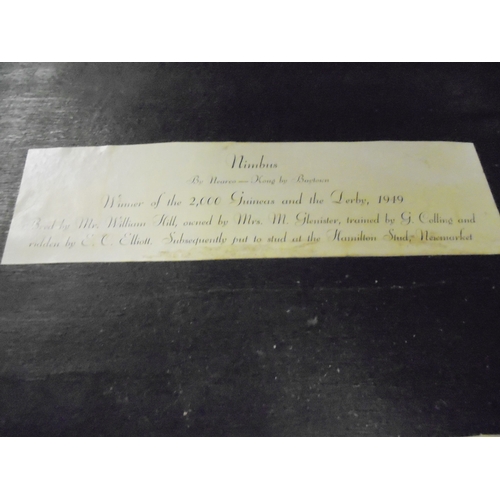 Nimbus
By Nearco—Kong by Baytown
Winner of the 2,000 Guineas and the Derby, 1949
Bred by Mr. William Hill, owned by Mrs. M. Glenister, trained by G. Colling and
ridden by E. C. Elliott. Subsequently put to stud at the Hamilton Stud, Newmarket